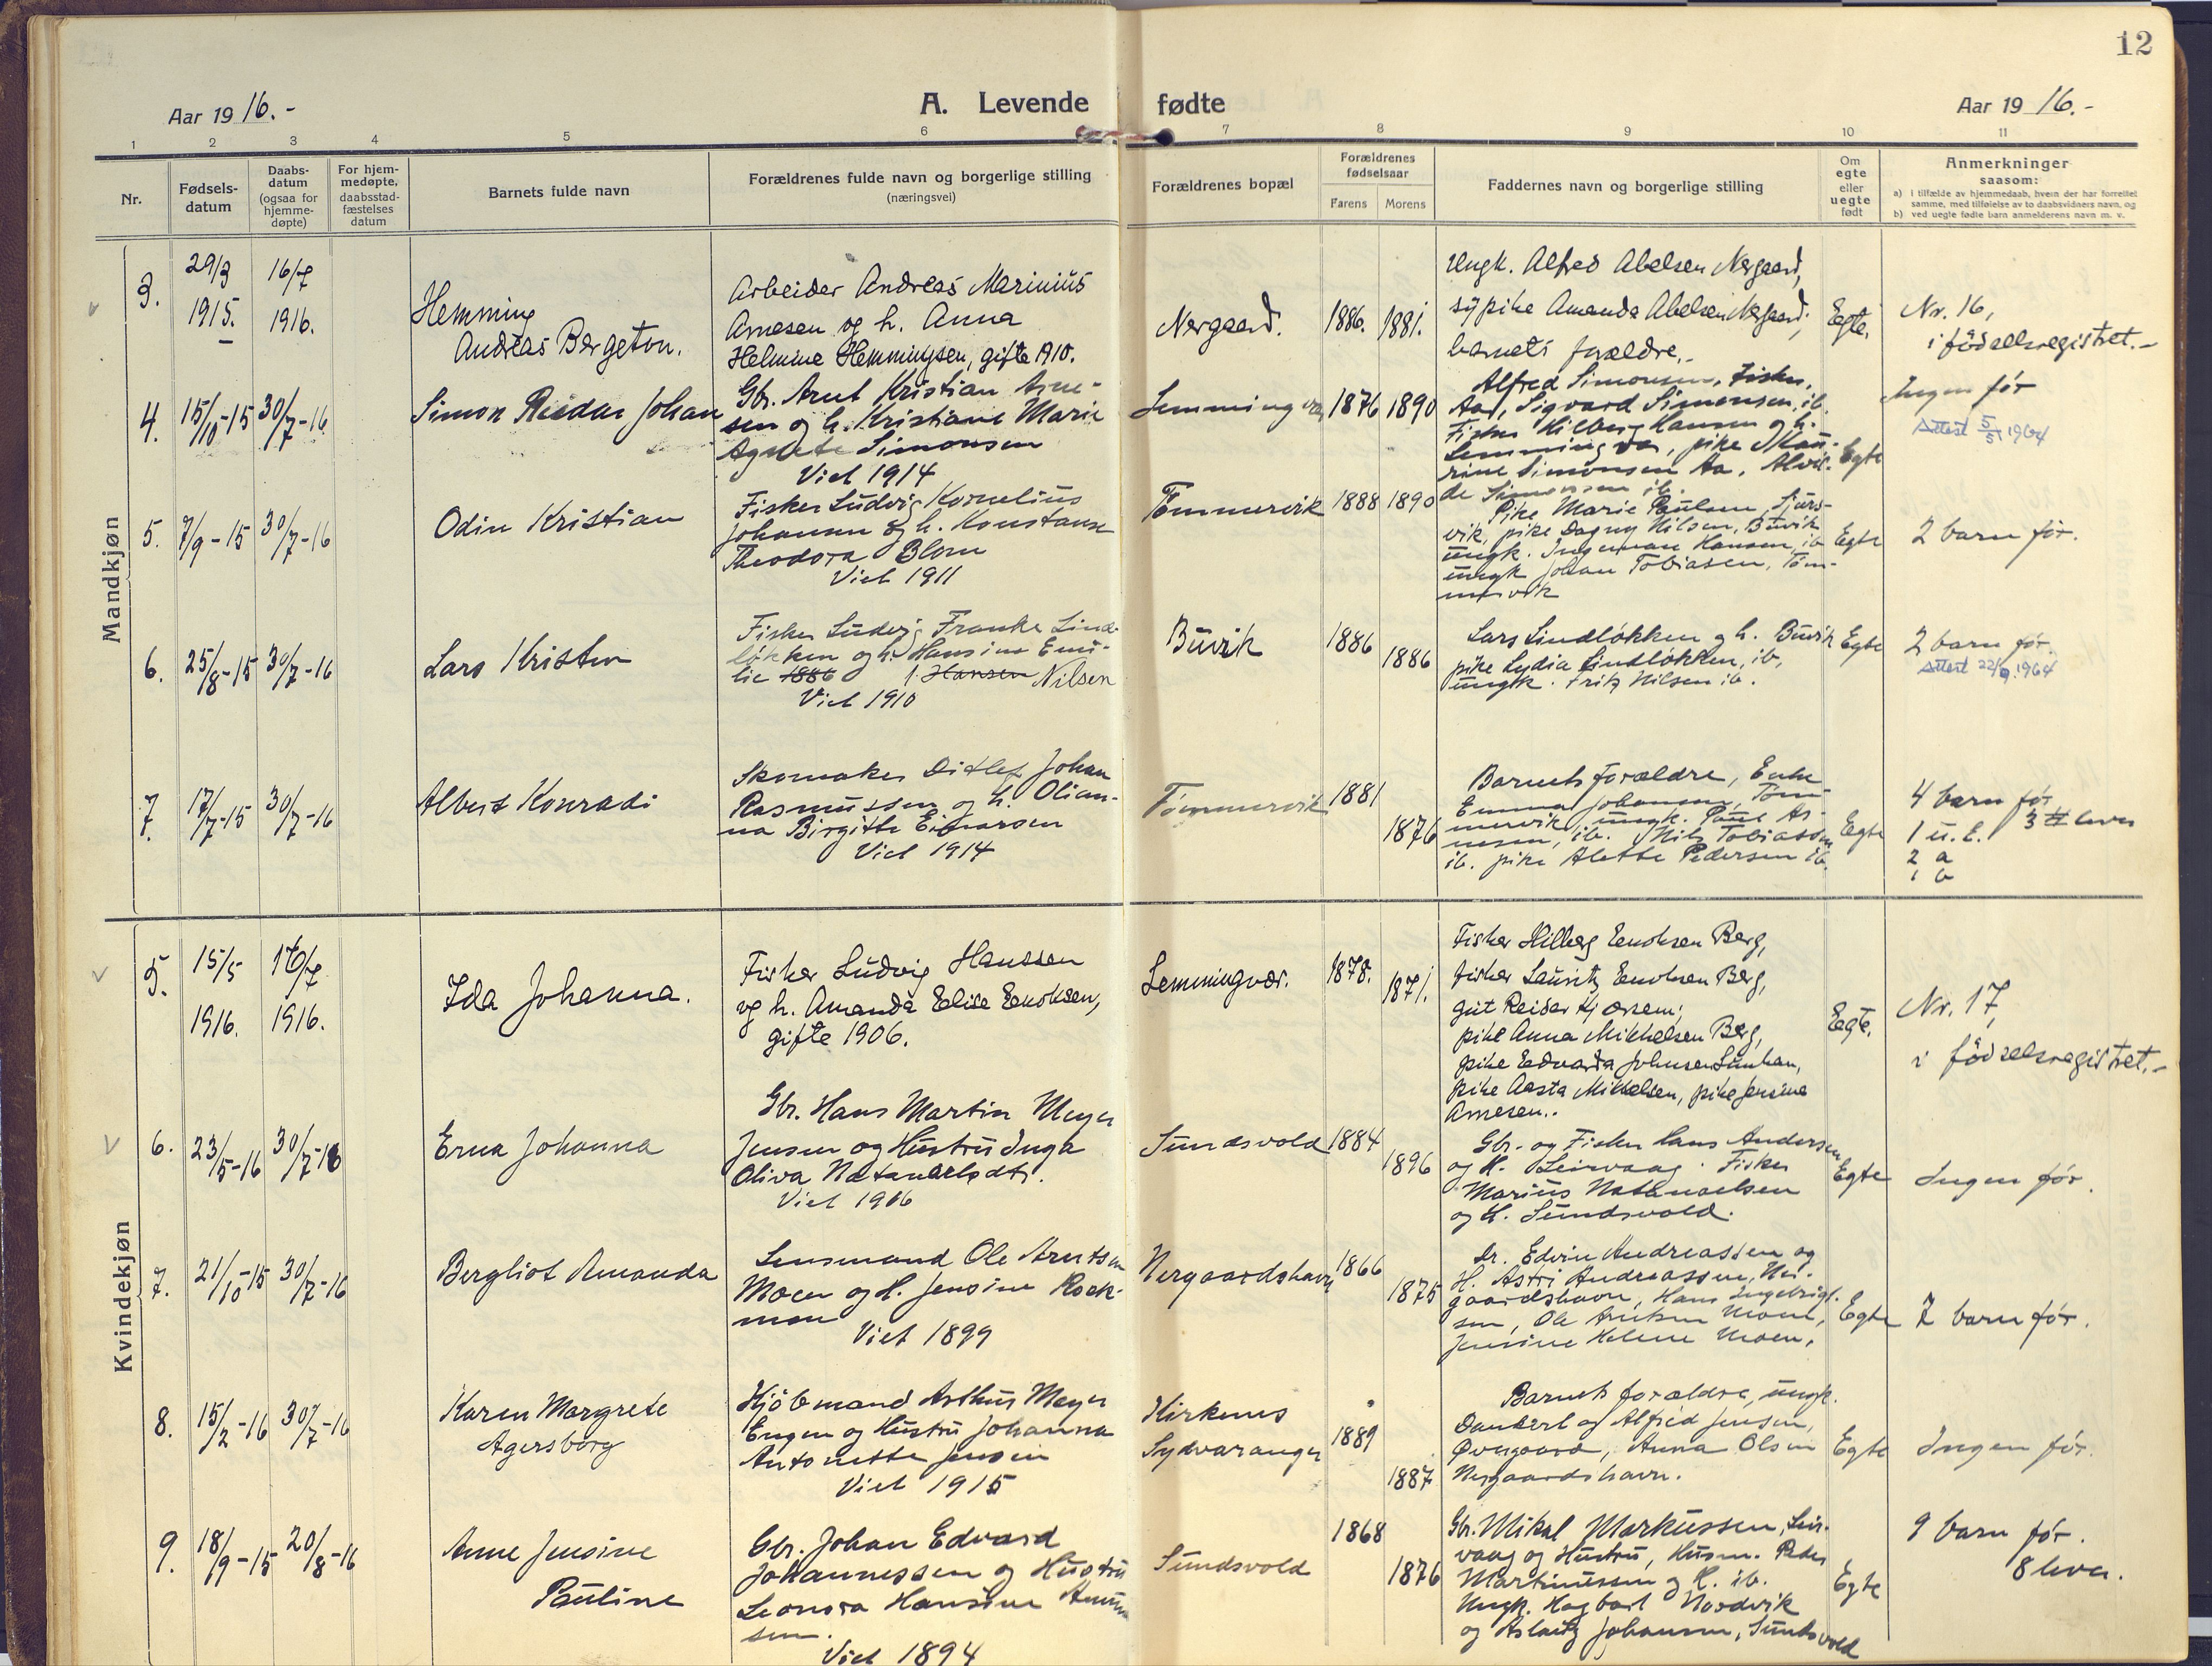 12
Aar 1916.-
A. Levende fødte
Aar 1916.-
1 2 3 4 5 6 7 8 9 10 11
Nr.
Fødsels-
datum
Daabs-
datum
(ogsaa for
hjemme-
døpte)
For hjem-
medøpte,
daabsstad-
fæstelses
datum
Barnets fulde navn
Forældrenes fulde navn og borgerlige stilling
(næringsvei)
Forældrenes bopæl
Forældrenes
fødselsaar
Farens Morens
Faddernes navn og borgerlige stilling
Om
egte
eller
uegte
født
Anmerkninger
saasom:
a) i tilfælde av hjemmedaab, hvem der har forrettet
samme, med tilføielse av to daabsvidners navn, og
b) ved uegte fødte barn anmelderens navn m. v.
Mandkjøn
3.
29/3
1915.
16/7
1916.
Hemming
Andreas Bergeton.
Arbeider Andreas Marinius
Arnesen og h. Anna
Helmine Hemmingsen, gifte 1910.
Nergaard.
1886.
1881.
Ungk. Alfred Abelsen Nergaard,
sypike Amanda Abelsen Nergaard,
barnets forældre.
Egte.
Nr. 16,
i fødselsregistret.-
4.
15/10-15
30/7-16
Simon Reidar Johan
Gbr. Arnt Kristian Arne-
sen og h. Kristiane Marie
Agnete Simonsen
Viet 1914
Lemmingvær
1876
1890
Alfred Simonsen, Fisker,
Aa, Sigvard Simonsen, ib.
Fisker Hilberg Hansen og h.
Lemmingvær, pike Mau-
rine Simonsen Aa, Alvil-
de Simonsen ib.
Egte
Ingen før
Attest 5/5 1964
5.
7/9-15
30/7-16
Odin Kristian
Fisker Ludvig Kornelius
Johansen og h. Konstanse
Theodora Blom
Viet 1911
Tømmervik
1888
1890
Pike Marie Paulsen, Sjurs-
vik, pike Dagny Nilsen, Buvik
ungk. Ingeman Hansen, ib
ungk Johan Tobiasen, Tøm-
mervik
Egte
2 barn før.
6.
25/8-15
30/7-16
Lars Kristen
Fisker Ludvig Franke Lind-
løkken og h. Hansine Emi-
lie 1886 f. Hansen Nilsen
Viet 1910
Buvik
1886
1886
Lars Lindløkken og h. Buvik
pike Lydia Lindløkken, ib,
ungk. Fritz Nilsen ib.
Egte
2 barn før.
Attest 22/9.1964
7.
17/7-15
30/7-16
Albert Konradi
Skomaker Ditlef Johan
Rasmussen og h. Olian-
na Birgitte Einarsen
Viet 1914
Tømmervik
1881
1876
Barnets forældre, Enke
Emma Johansen, Tøm-
mervik, ungk. Paul Ar-
nesen, ib. Nils Tobiassen
ib. pike Alette Pedersen ib.
Egte
4 barn før
1 u.E. 3 lever
2 a
1 b
Kvindekjøn
5.
15/5
1916.
16/7
1916.
Ida Johanna.
Fisker Ludvig Hanssen
og h. Amanda Elise Enoksen,
gifte 1906.
Lemmingvær.
1878.
1871.
Fisker Hilberg Enoksen Berg,
fisker Lauritz Enoksen Berg,
gut Reidar Kjærsem;
pike Anna Mikkelsen Berg,
pike Edvarda Johnsen Lunhan,
pike Aasta Mikkelsen, pike Jensine
Arnesen..
Egte.
Nr. 17,
i fødselsregistret.-
6.
23/5-16
30/7-16
Erna Johanna
Gbr. Hans Martin Meyer
Jensen og Hustru Inga
Oliva Natanaelsdtr.
Viet 1906
Sundsvold
1884
1896
Gbr- og Fisker Hans Andersen
og H. Leirvaag. Fisker
Marius Natanaelsen
og H. Sundsvold.
Egte
Ingen før.
7.
21/10-15
30/7-16
Bergliot Amanda
Lensmand Ole Arntsen
Moen og H. Jensine Rock-
man
Viet 1899
Nergaardshavn
1866
1875
Dr. Edvin Andreassen og
H. Astri Andreassen, Ner-
gaardshavn, Hans Ingebrigt-
sen, Ole Arntsen Moen,
Jensine Helene Moen,
Egte
7 barn før.
8.
15/2-16
30/7-16
Karen Margrete
Agersborg
Kjøbmand Arthur Meyer
Eugen og Hustru Johanna
Antonette Jensen
Viet 1915
Kirkenes
Sydvaranger
1889
1887
Barnets forældre, ungk.
Dankert og Alfred Jensen,
Øvergaard, Anna Olsen
Nergaardshavn.
Egte
Ingen før.
9.
18/9-15
20/8-16
Anne Jensine
Pauline
Gbr. Johan Edvard
Johannessen og Hustru
Leonora Hansine Amun-
sen.
Viet 1894
Sundsvold
1868
1876
Gbr. Mikal Markussen, Leir-
vaag og Hustru, Husm. Peder
Martinussen og H. ib.
Ungk. Hagbart Nordvik
og Aslaug Johansen, Sundsvold
Egte
9 barn før.
8 lever.